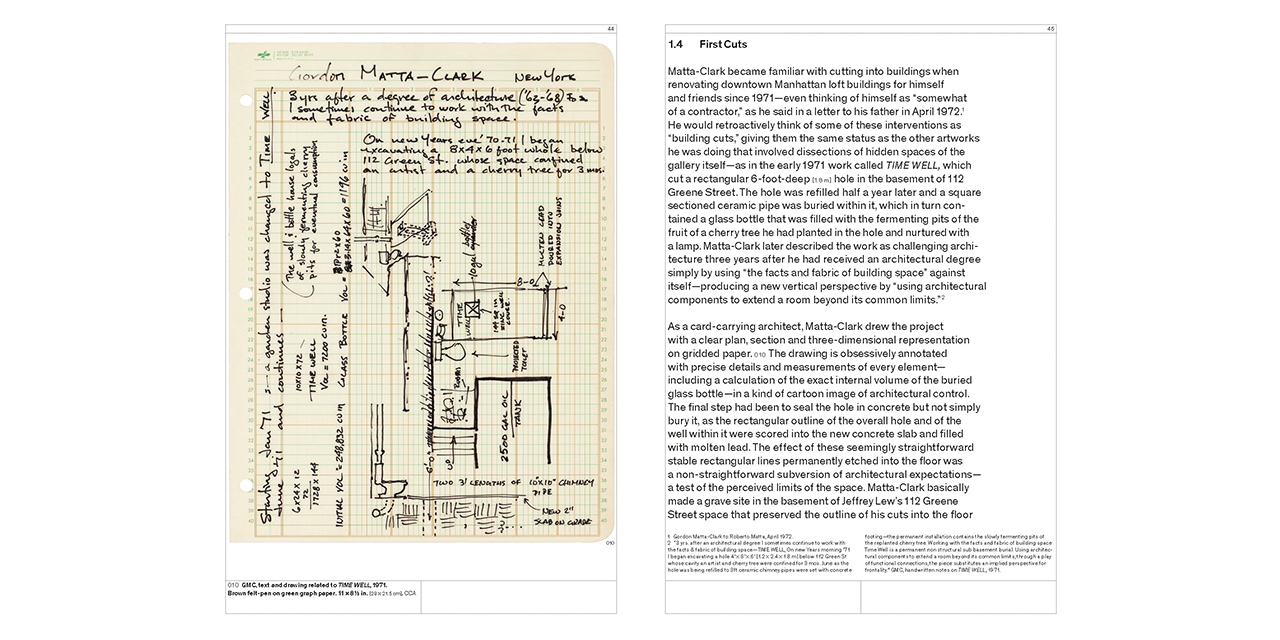 44
Gordon MATTA-CLARK NEW YORK
3 yrs after a degree of architecture ('63-'68)
I sometimes continue to work with the facts
and fabric of building space.
On new years eve' 70.71 I began
excavating a 8x4x6 foot whole below
112 Green St. whose space confined
an artist and a cherry tree for 3 mos.
Starting Jan '71 a garden studio was changed to TIME WELL.
June '71 and continues
(The well's bottle house
of slowly fermenting cherry
pits for eventual consumption
10x10x72
TIME WELL
VOL = 7200 cu in.
GLASS BOTTLE VOL =
= 1196 cu in
6x24x12
72
1728x144
INITIAL VOL = 248,832 cu in
MOLTEN LEAD
POURED INTO
EXPANSION JOINTS
8-0
4-0
TIME
WELL
PROJECTED
TOILET
UP
2500 GAL OIL
TANK
TWO 3' LENGTHS OF 10"x10" CHIMNEY
PIPE
NEW 2"
SLAB ON GRADE
010
010 GMC, text and drawing related to TIME WELL, 1971.
Brown felt-pen on green graph paper. 11 x 8½ in. [28 x 21.5 cm]. CCA
45
1.4 First Cuts
Matta-Clark became familiar with cutting into buildings when
renovating downtown Manhattan loft buildings for himself
and friends since 1971—even thinking of himself as “somewhat
of a contractor,” as he said in a letter to his father in April 1972.1
He would retroactively think of some of these interventions as
“building cuts,” giving them the same status as the other artworks
he was doing that involved dissections of hidden spaces of the
gallery itself—as in the early 1971 work called TIME WELL, which
cut a rectangular 6-foot-deep [1.8 m] hole in the basement of 112
Greene Street. The hole was refilled half a year later and a square
sectioned ceramic pipe was buried within it, which in turn con-
tained a glass bottle that was filled with the fermenting pits of the
fruit of a cherry tree he had planted in the hole and nurtured with
a lamp. Matta-Clark later described the work as challenging archi-
tecture three years after he had received an architectural degree
simply by using “the facts and fabric of building space” against
itself—producing a new vertical perspective by “using architectural
components to extend a room beyond its common limits.”2
As a card-carrying architect, Matta-Clark drew the project
with a clear plan, section and three-dimensional representation
on gridded paper. 010 The drawing is obsessively annotated
with precise details and measurements of every element—
including a calculation of the exact internal volume of the buried
glass bottle—in a kind of cartoon image of architectural control.
The final step had been to seal the hole in concrete but not simply
bury it, as the rectangular outline of the overall hole and of the
well within it were scored into the new concrete slab and filled
with molten lead. The effect of these seemingly straightforward
stable rectangular lines permanently etched into the floor was
a non-straightforward subversion of architectural expectations—
a test of the perceived limits of the space. Matta-Clark basically
made a grave site in the basement of Jeffrey Lew’s 112 Greene
Street space that preserved the outline of his cuts into the floor
1 Gordon Matta-Clark to Roberto Matta, April 1972.
2 “3 yrs. after an architectural degree I sometimes continue to work with
the facts & fabric of building space—TIME WELL, On new Years morning ’71
I began excavating a hole 4”x 8”x 6” [1.2 x 2.4 x 1.8 m] below 112 Green St.
whose cavity an artist and cherry tree were confined for 3 mos. June as the
hole was being refilled to 3ft ceramic chimney pipes were set with concrete
footing—the permanent installation contains the slowly fermenting pits of
the replanted cherry tree. Working with the facts and fabric of building space
Time Well is a permanent non structural sub basement burial. Using architec-
tural components to extend a room beyond its common limits, through a play
of functional connections, the piece substitutes an implied perspective for
frontality.” GMC, handwritten notes on TIME WELL, 1971.